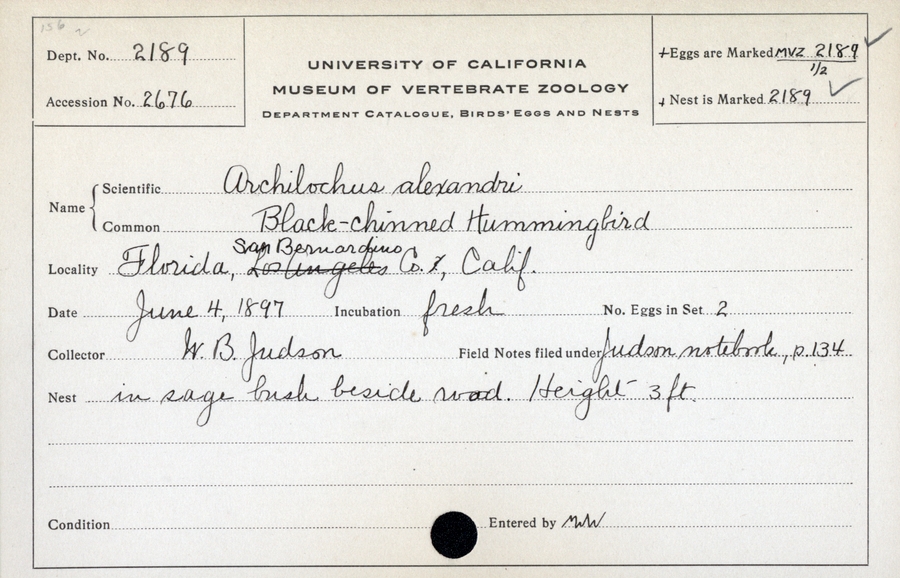 156
Dept. No. 2189
Accession No. 2676
UNIVERSITY OF CALIFORNIA
MUSEUM OF VERTEBRATE ZOOLOGY
DEPARTMENT CATALOGUE, BIRDS' EGGS AND NESTS
+Eggs are Marked MVZ 2189
1/2
+ Nest is Marked 2189
Name
Scientific Archilochus alexandri
Common Black-chinned Hummingbird
San Bernardino
Locality Florida, Los Angeles Co., Calif.
Date June 4, 1897 Incubation fresh No. Eggs in Set 2
Collector W. B. Judson Field Notes filed under Judson notebook, p. 134
Nest in sage bush beside road. Height 3 ft.
Condition Entered by MW